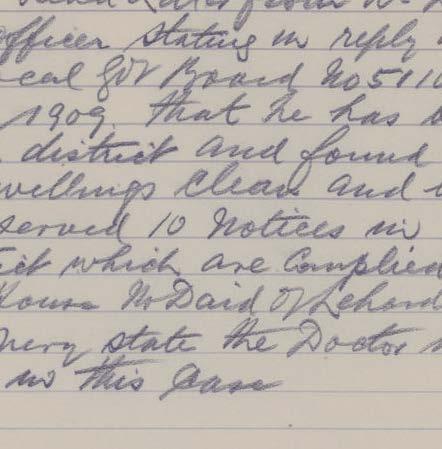 Officer stating in reply
ocal Gov Board No 511
1909. that he has
district and found
wellings Clean and
served 10 Notices in
ict which are Complied
House McDaid of
very state the Doctor
in this Case